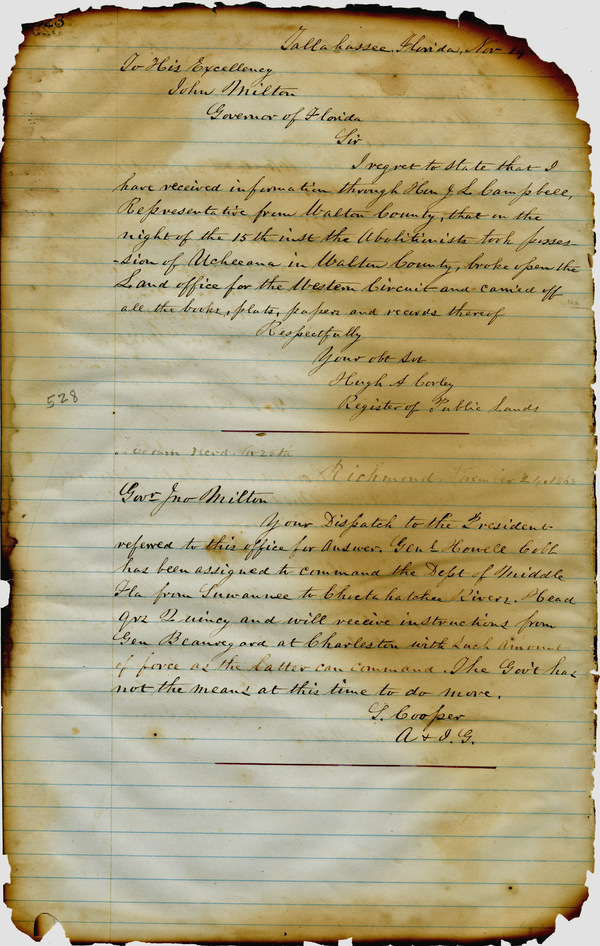 23
Tallahassee, Florida, Nov 19
To His Excellency
John Milton
Governor of Florida
Sir
I regret to state that I
have received information through Hon J. L. Campbell,
Representative from Walton County, that on the
night of the 15th inst the Abolitionists took posses-
-sion of Ucheeana in Walton County, broke open the
Land office for the Western Circuit and carried off
all the books, plats, papers and records thereof
Respectfully
Your obt Svt
Hugh A Corley
Register of Public Lands
528
Recvd Nov 25th
Richmond November 24, 1862
Govr Jno Milton
Your Dispatch to the President
referred to this office for answer. Genl Howell Cobb
has been assigned to command the Dept of Middle
Fla from Suwannee to Choctahatchee Rivers. Head
qrs Quincy and will receive instructions from
Gen Beauregard at Charleston with such amount
of force as the latter can command. The Gov't has
not the means at this time to do more.
S. Cooper
A & I. G.